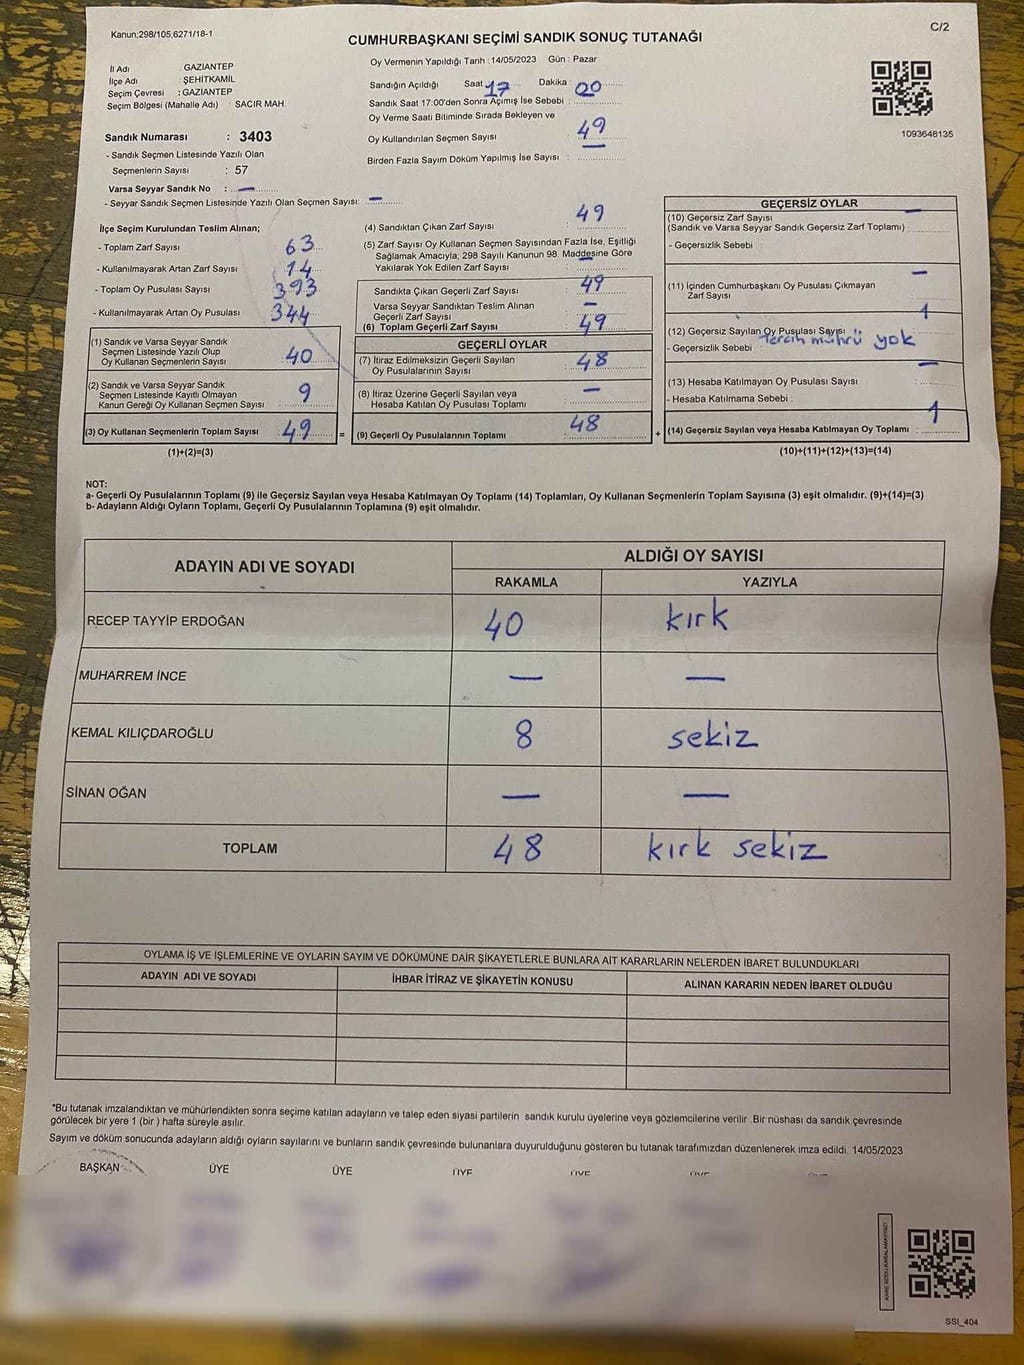 Kanun;298/105,6271/18-1
C/2
CUMHURBAŞKANI SEÇİMİ SANDIK SONUÇ TUTANAĞI
İl Adı : GAZİANTEP
İlçe Adı : ŞEHİTKAMİL
Seçim Çevresi : GAZİANTEP
Seçim Bölgesi (Mahalle Adı) : SACIR MAH.
Sandık Numarası : 3403
- Sandık Seçmen Listesinde Yazılı Olan
Seçmenlerin Sayısı : 57
Varsa Seyyar Sandık No : —
- Seyyar Sandık Seçmen Listesinde Yazılı Olan Seçmen Sayısı: —
Oy Vermenin Yapıldığı Tarih : 14/05/2023 Gün : Pazar
Sandığın Açıldığı Saat 17 Dakika : 00
Sandık Saat 17:00'den Sonra Açımış İse Sebebi :
Oy Verme Saati Bitiminde Sırada Bekleyen ve
Oy Kullandırılan Seçmen Sayısı : 49
Birden Fazla Sayım Döküm Yapılmış İse Sayısı : —
1093648135
İlçe Seçim Kurulundan Teslim Alınan;
- Toplam Zarf Sayısı : 63
- Kullanılmayarak Artan Zarf Sayısı : 14
- Toplam Oy Pusulası Sayısı : 393
- Kullanılmayarak Artan Oy Pusulası : 344
(1) Sandık ve Varsa Seyyar Sandık
Seçmen Listesinde Yazılı Olup
Oy Kullanan Seçmenlerin Sayısı : 40
(2) Sandık ve Varsa Seyyar Sandık
Seçmen Listesinde Kayıtlı Olmayan
Kanun Gereği Oy Kullanan Seçmen Sayısı : 9
(3) Oy Kullanan Seçmenlerin Toplam Sayısı : 49
(1)+(2)=(3)
(4) Sandıktan Çıkan Zarf Sayısı : 49
(5) Zarf Sayısı Oy Kullanan Seçmen Sayısından Fazla İse, Eşitliği
Sağlamak Amacıyla; 298 Sayılı Kanunun 98. Maddesine Göre
Yakılarak Yok Edilen Zarf Sayısı : —
Sandıkta Çıkan Geçerli Zarf Sayısı : 49
Varsa Seyyar Sandıktan Teslim Alınan
Geçerli Zarf Sayısı : —
(6) Toplam Geçerli Zarf Sayısı : 49
GEÇERLİ OYLAR
(7) İtiraz Edilmeksizin Geçerli Sayılan
Oy Pusulalarının Sayısı : 48
(8) İtiraz Üzerine Geçerli Sayılan veya
Hesaba Katılan Oy Pusulası Toplamı : —
= (9) Geçerli Oy Pusulalarının Toplamı : 48
GEÇERSİZ OYLAR
(10) Geçersiz Zarf Sayısı —
(Sandık ve Varsa Seyyar Sandık Geçersiz Zarf Toplamı) :
- Geçersizlik Sebebi :
(11) İçinden Cumhurbaşkanı Oy Pusulası Çıkmayan
Zarf Sayısı : —
(12) Geçersiz Sayılan Oy Pusulası Sayısı : 1
- Geçersizlik Sebebi : Tercih mührü yok
(13) Hesaba Katılmayan Oy Pusulası Sayısı : —
- Hesaba Katılmama Sebebi :
+ (14) Geçersiz Sayılan veya Hesaba Katılmayan Oy Toplamı : 1
(10)+(11)+(12)+(13)=(14)
NOT:
a- Geçerli Oy Pusulalarının Toplamı (9) ile Geçersiz Sayılan veya Hesaba Katılmayan Oy Toplamı (14) Toplamları, Oy Kullanan Seçmenlerin Toplam Sayısına (3) eşit olmalıdır. (9)+(14)=(3)
b- Adayların Aldığı Oyların Toplamı, Geçerli Oy Pusulalarının Toplamına (9) eşit olmalıdır.
ADAYIN ADI VE SOYADI
ALDIĞI OY SAYISI
RAKAMLA YAZIYLA
RECEP TAYYİP ERDOĞAN 40 kırk
MUHARREM İNCE — —
KEMAL KILIÇDAROĞLU 8 sekiz
SİNAN OĞAN — —
TOPLAM 48 kırk sekiz
OYLAMA İŞ VE İŞLEMLERİNE VE OYLARIN SAYIM VE DÖKÜMÜNE DAİR ŞİKAYETLERLE BUNLARA AİT KARARLARIN NELERDEN İBARET BULUNDUKLARI
ADAYIN ADI VE SOYADI İHBAR İTİRAZ VE ŞİKAYETİN KONUSU ALINAN KARARIN NEDEN İBARET OLDUĞU
*Bu tutanak imzalandıktan ve mühürlendikten sonra seçime katılan adayların ve talep eden siyasi partilerin sandık kurulu üyelerine veya gözlemcilerine verilir. Bir nüshası da sandık çevresinde
görülecek bir yere 1 (bir) hafta süreyle asılır.
Sayım ve döküm sonucunda adayların aldığı oyların sayılarını ve bunların sandık çevresinde bulunanlara duyurulduğunu gösteren bu tutanak tarafımızdan düzenlenerek imza edildi. 14/05/2023
BAŞKAN ÜYE ÜYE ÜYE ÜYE ÜYE
SSİ_404